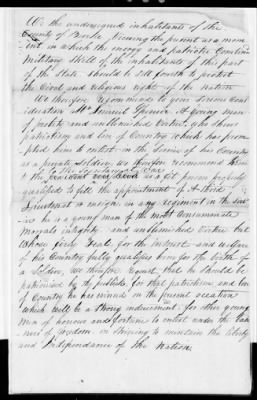 We the undersigned inhabitants of the
County of Berks Viewing the present as a mom
ent in which the energy and patriotic Combined
Military Skill of the inhabitants of this part
of the State should be call forth to protect
the Civil and religious right of the Nation
We therefore recommend to your serious Cons
ideration Mr Samuel A young Man
of probity and unblemished Virtue, who whose
patriotism and love of Country which has prom
pted him to enlist in the Service of his Country
as a private Soldier, we therefore recommend him
to the Secretary of War
to the as a fit person properly
qualified to fill the appointment of A third
Lieutenant or ensign in any regiment in the Serv
ice he is a young man of the most Consummate
Morals integrity and unblemished Virtue but
Whose Zeal for the interest and welfare
of his Country fully qualifies him for the birth of
a Soldier, We therefore Council that he should be
patronised by the publick for that patriotism and love
of Country he has evinced in the present occasion
which will be a strong inducement for other young
Men of honour and fortune to enlist under the ban
ners of freedom in Striving to maintain the liberty
and Independance of the Nation